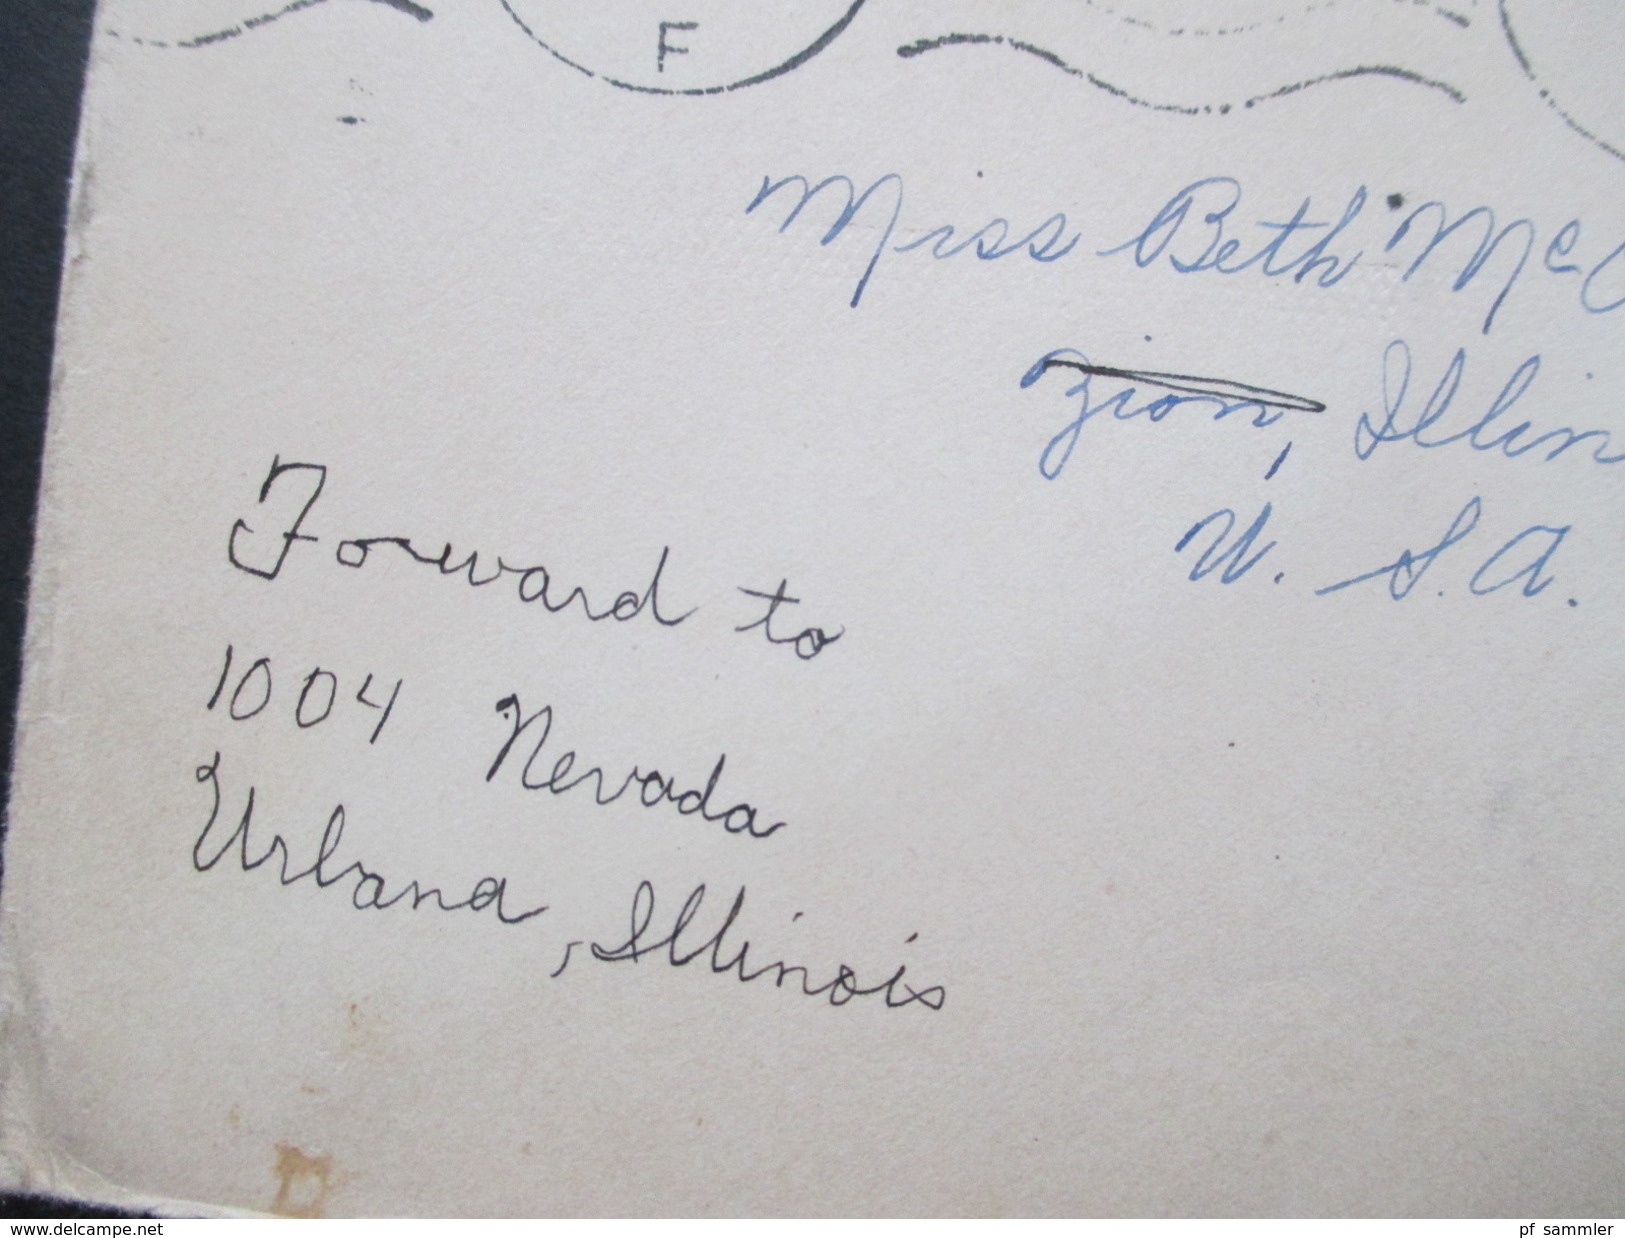 F
Miss Beth Mc
Zion, Illin
U. S. A.
Forward to
1004 Nevada
Urbana, Illinois
www.delcampe.net
pf_sammler